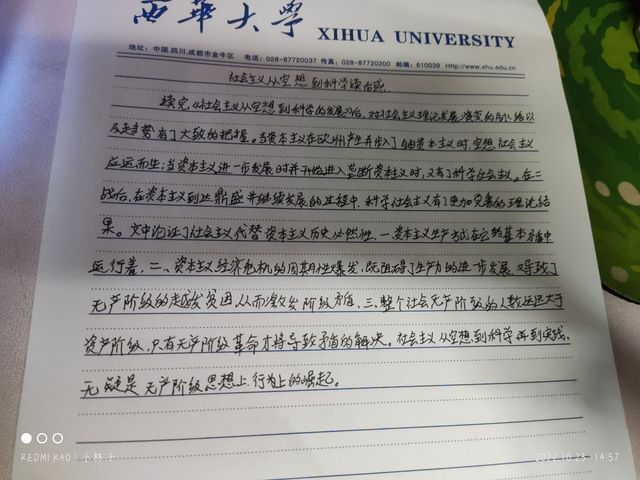 西华大学 XIHUA UNIVERSITY
地址：中国.四川.成都市金牛区 电话：028-87720037 传真：028-87720200 邮编：610039 Http://www.xhu.edu.cn
社会主义从空想到科学读后感
读完《社会主义从空想到科学的发展》后，对社会主义理论发展演变的脉络以
及走势有了大致的把握。当资本主义在欧州产生并步入了自由资本主义时，空想社会主义
应运而生；当资本主义进一步发展时并开始进入垄断资本主义时，又有了科学社会主义。在二
战后，在资本主义到达鼎盛并继续发展的过程中，科学社会主义有了更加完善的理论结
果。文中论证了社会主义代替资本主义历史必然性，一资本主义生产方式在它的基本矛盾中
运行着，二、资本主义经济危机的周期性爆发，既阻碍了生产力的进一步发展，又导致了
无产阶级的越发贫困，从而激发阶级矛盾，三、整个社会无产阶级的人数远远大于
资产阶级，只有无产阶级革命才将导致矛盾的解决。社会主义从空想到科学再到实践，
无疑是无产阶级思想上、行为上的崛起。
REDMI K40 \ 小林子
2022.10.23 14:57